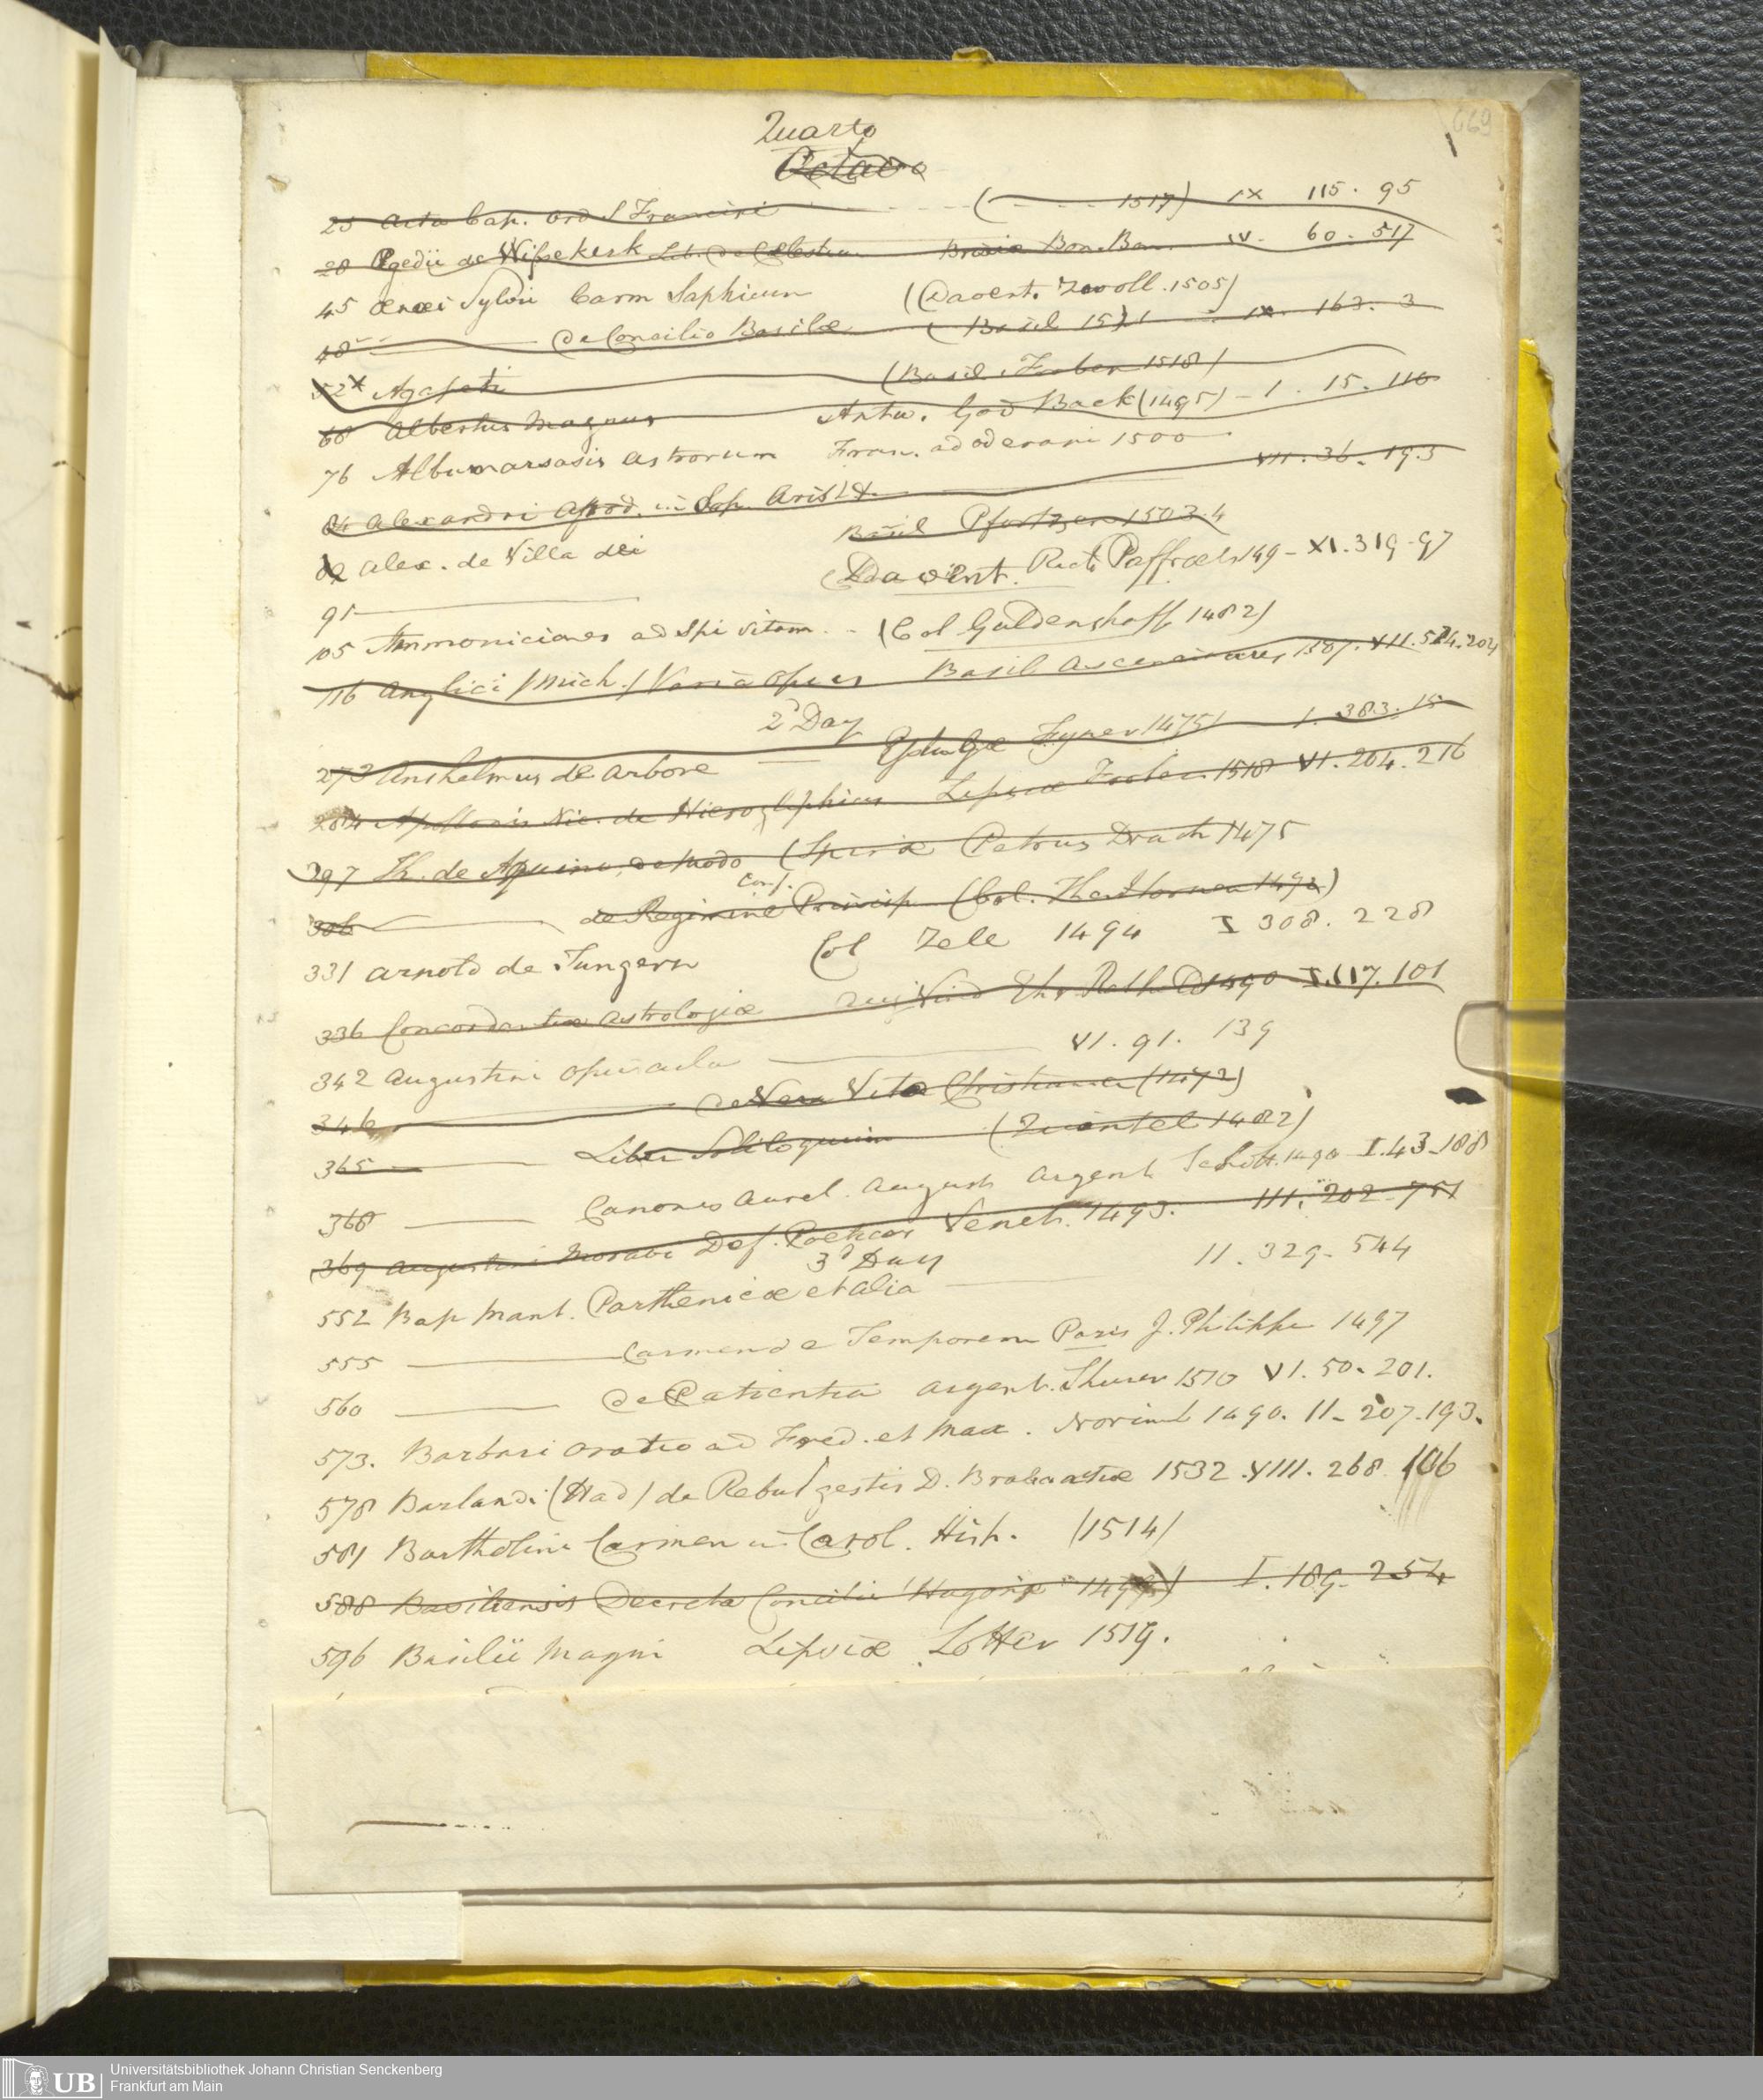 669
1
Quarto
Octavo
25 Acta Cap. ord S Francisci (- - - - 1517) IX 115. 95
28 Egedii de Wissekerk Lib. de Brixia Bon. Bon. IV. 60. 517
45 Aenei Sylvii Carm Saphicum (Davent. Zwoll. 1505)
48 de Concilio Basilae (Basil 1521 IX. 163. 3
52 Agapeti (Basil. Froben 1518)
68 Albertus Magnus Antw. God Back (1495) - I. 15. 116
76 Albumarsasis astrorum 1500
84 Alexandri Aphrod. in Sop. Arist. VII. 36. 193
Alex. de Villa dei Basil Pfortzen 1503.4
91 Davent. Rich Paffraet 149 - XI. 319. 97
105 Ammoniciones ad Spi vitam (Col Guldenshoff 1482)
116 Anglici (Mich.) Varia Opera Basil 1507. VII. 524. 204
2d Day
273 Anshelmus de Arbore Fyner 1475) I. 383. 15
284 Apollonis Nic. de Hieroglyphicis Lipsiae 1518 VI. 204. 216
297 Th. de Aquino, de modo conf. (Spirae Petrus Drach 1475
306 de Regimine Princip (Col. Therhornen 1472)
331 Arnold de Tungern Col Zele 1494 I 308. 228
336 Concordantiae Astrologiae Aug Vind Eh. Rathd 1490 I. 117. 101
342 Augustini opuscula VI. 91. 139
346 de Vera Vita Christiana (1472)
365 Liber Soliloquium (Quentel 1482)
368 Canones Aurel. August Argent Schott. 1490 I. 43. 188
369 Augustini Moravi Def. Poeticae Venet. 1493. III. 202. 751
3d Day
552 Bap Mant. Parthenicae et alia II. 329. 544
555 Carmen de Temporem Paris J. Philippe 1497
560 de Patientia Argent. Shurer 1510 VI. 50. 201.
573. Barbari oratio ad Fred. et Max. Norimb 1490. II. 207. 193.
578 Barlandi (Had) de Rebus gestis D. Brabantiae 1532. VIII. 268. 106
581 Bartholini Carmen in Carol. Hisp. (1514)
588 Basiliensis Decreta Concilii Hagonis 149 I. 189. 254
596 Basilii Magni Lipsiae Lotter 1519.
UB
Universitätsbibliothek Johann Christian Senckenberg
Frankfurt am Main